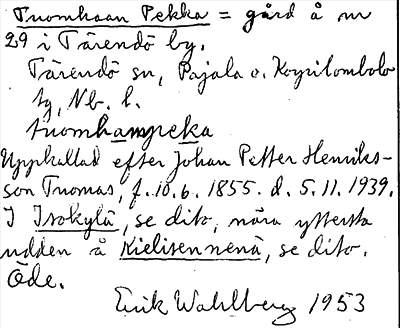 Tuomhaan Pekka = gård å nr
29 i Tärendö by.
Tärendö sn, Pajala o. Korpilombolo
tg, Nb. l.
tuomhampeka
Uppkallad efter Johan Petter Henriks-
son Tuomas, f. 10.6. 1855. d. 5.11. 1939.
I Isokylä, se dito, nära yttersta
udden å Kielisennenä, se dito.
Öde.
Erik Wahlberg 1953